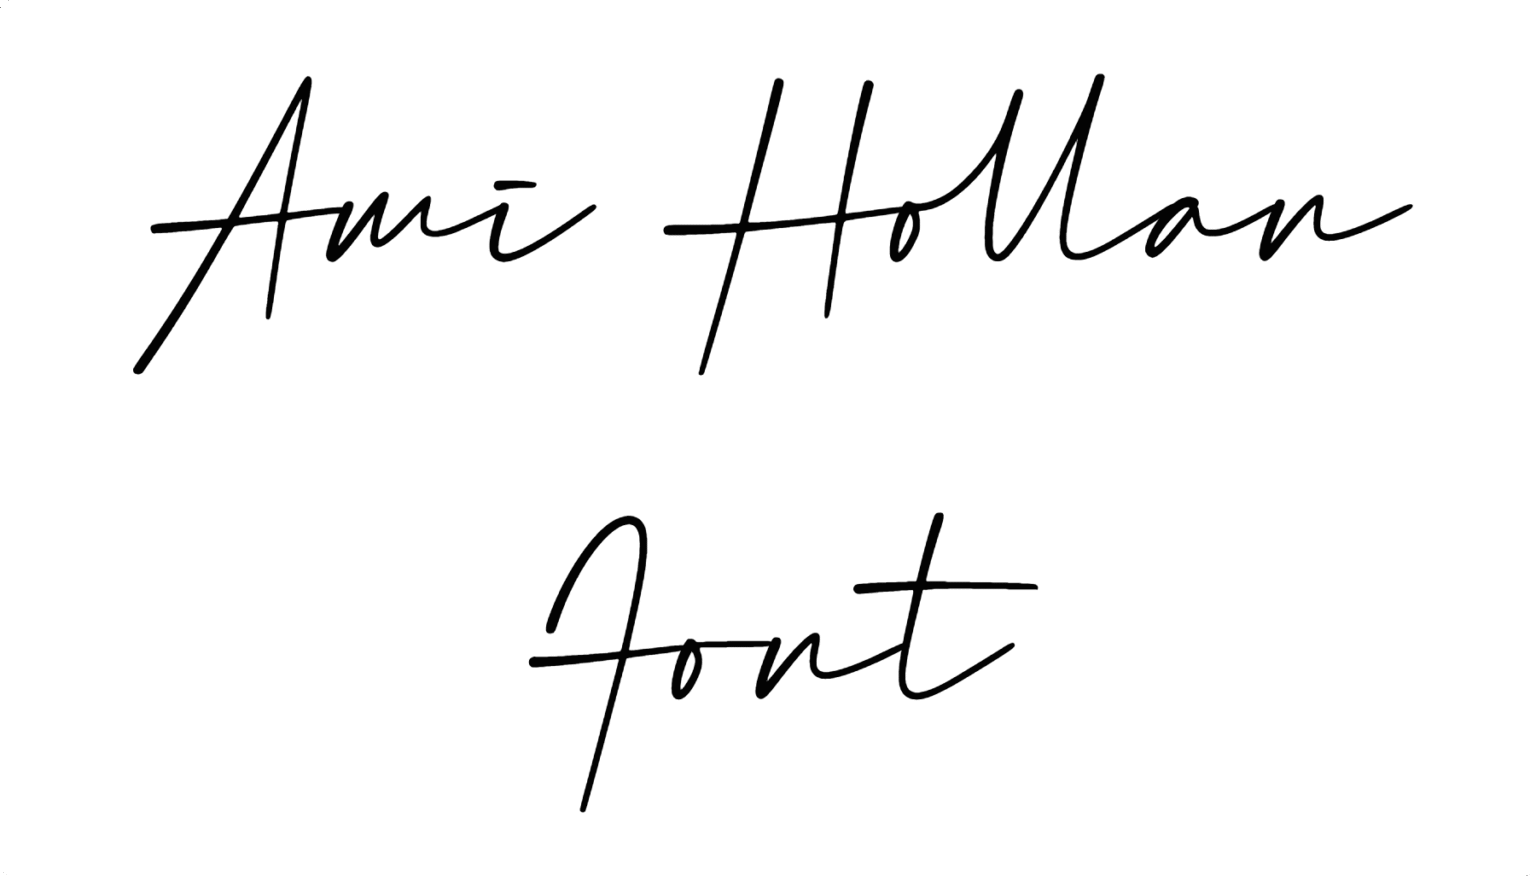 Ami Hollan
Font